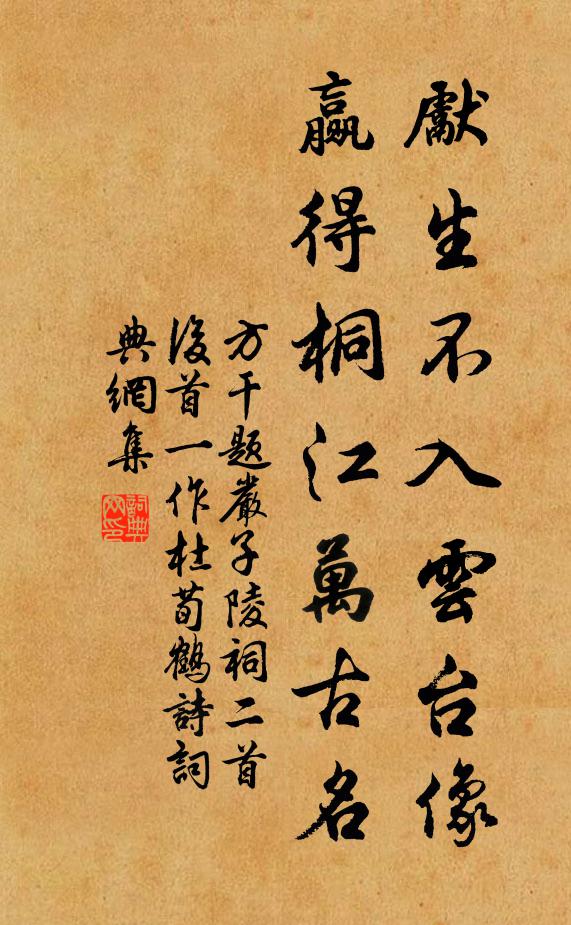 獻生不入雲台像
贏得桐江萬古名
方干题嚴子陵祠二首
後首一作杜荀鶴詩詞
典網集
詞典
网印